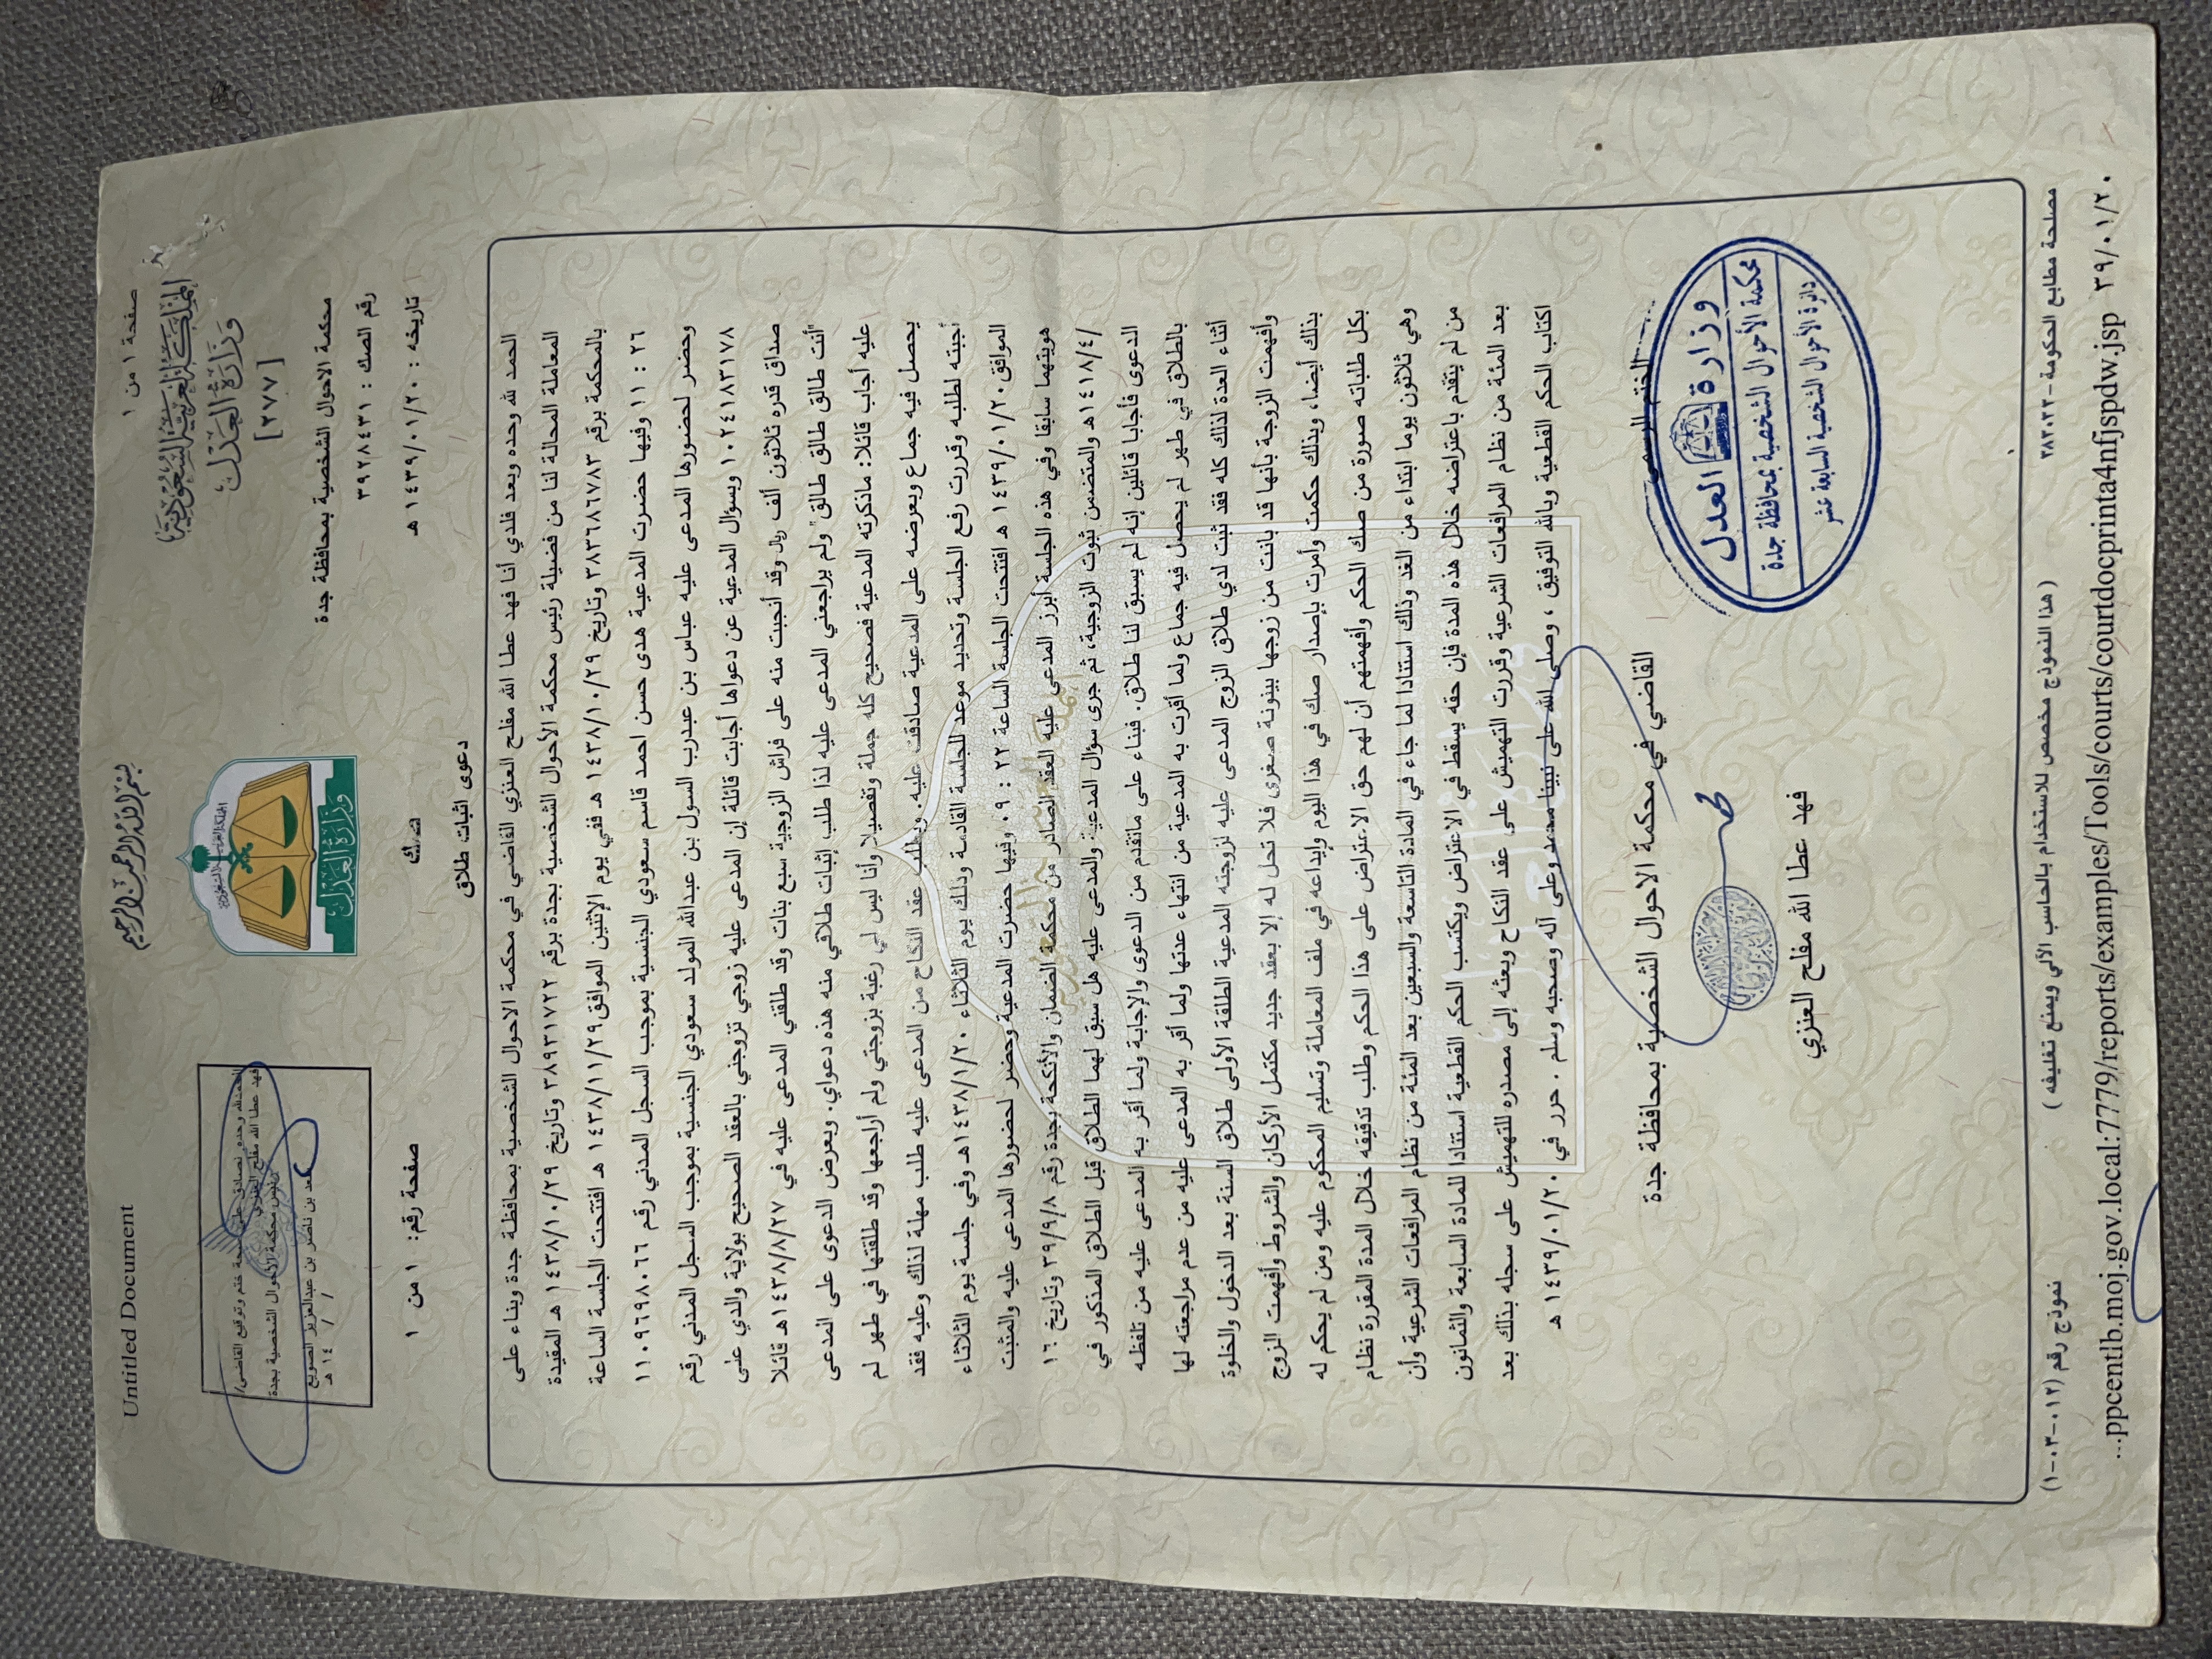 Untitled Document
صفحة ١ من ١
بسم الله الرحمن الرحيم
المملكة العربية السعودية
وزارة العدل
[٢٧٧]
محكمة الاحوال الشخصية بمحافظة جدة
رقم الصك : ٣٩٢٨٤٣١
تاريخه : ١٤٣٩/٠١/٢٠ هـ
المملكة العربية السعودية
وزارة العدل
الحمدلله وحده نصادق على صحة ختم وتوقيع القاضي/
فهد عطا الله مفلح العنزي
رئيس محكمة الأحوال الشخصية بجدة
سعد بن ناصر بن عبدالعزيز
/ / ١٤ هـ
صك
صفحة رقم: ١ من ١
دعوى اثبات طلاق
الحمد لله وحده وبعد فلدي أنا فهد عطا الله مفلح العنزي القاضي في محكمة الاحوال الشخصية بمحافظة جدة وبناء على
المعاملة المحالة لنا من فضيلة رئيس محكمة الأحوال الشخصية بجدة برقم ٣٨٩٣١٧٢٢ وتاريخ ١٤٣٨/١٠/٢٩ هـ المقيدة
بالمحكمة برقم ٣٨٣٦٨٦٧٨٣ وتاريخ ١٤٣٨/١٠/٢٩ هـ ففي يوم الإثنين الموافق١٤٣٨/١١/٢٩ هـ افتتحت الجلسة الساعة
٢٦ : ١١ وفيها حضرت المدعية هدى حسن احمد قاسم سعودي الجنسية بموجب السجل المدني رقم ١١٠٩٦٩٨٠٦٦
وحضر لحضورها المدعى عليه عباس بن عبدرب السول بن عبدالله المولد سعودي الجنسية بموجب السجل المدني رقم
١٠٠٢٤١٨٣١٧٨ وبسؤال المدعية عن دعواها أجابت قائلة إن المدعى عليه زوجي تزوجني بالعقد الصحيح بولاية والدي على
صداق قدره ثلاثون ألف ريال وقد أنجبت منه على فراش الزوجية سبع بنات وقد طلقني المدعى عليه في ١٤٣٨/٨/٢٧هـ قائلا
"أنت طالق طالق طالق" ولم يراجعني المدعى عليه لذا طلب إثبات طلاقي منه هذه دعواي. وبعرض الدعوى على المدعى
عليه أجاب قائلا: ماذكرته المدعية فصحيح كله جملة وتفصيلا وأنا ليس لي رغبة بزوجتي ولم أراجعها وقد طلقتها في طهر لم
يحصل فيه جماع وبعرضه على المدعية صادقت عليه. وبطلب عقد النكاح من المدعى عليه طلب مهلة لذلك وعليه فقد
أجبته لطلبه وقررت رفع الجلسة وتحديد موعد للجلسة القادمة وذلك يوم الثلاثاء ١٤٣٨/١/٢٠هـ وفي جلسة يوم الثلاثاء
الموافق١٤٣٩/٠١/٢٠ هـ افتتحت الجلسة الساعة ٢٢ : ٠٩ وفيها حضرت المدعية وحضر لحضورها المدعى عليه والمثبت
هويتهما سابقا وفي هذه الجلسة أبرز المدعى عليه العقد الصادر من محكمة الضمان والأنكحة بجدة رقم ٣٩/٩/٨ وتاريخ ١٦
/١٤١٨/٤هـ والمتضمن ثبوت الزوجية، ثم جرى سؤال المدعية والمدعى عليه هل سبق لهما الطلاق قبل الطلاق المذكور في
الدعوى فأجابا قائلين إنه لم يسبق لنا طلاق. فبناء على ماتقدم من الدعوى والإجابة ولما أقر به المدعى عليه من تلفظه
بالطلاق في طهر لم يحصل فيه جماع ولما أقرت به المدعية من انتهاء عدتها ولما أقر به المدعى عليه من عدم مراجعته لها
أثناء العدة لذلك كله فقد ثبت لدي طلاق الزوج المدعى عليه لزوجته المدعية الطلقة الأولى طلاق السنة بعد الدخول والخلوة
وأفهمت الزوجة بأنها قد بانت من زوجها بينونة صغرى فلا تحل له إلا بعقد جديد مكتمل الأركان والشروط وأفهمت الزوج
بذلك أيضا، وبذلك حكمت وأمرت بإصدار صك في هذا اليوم وإيداعه في ملف المعاملة وتسليم المحكوم عليه ومن لم يحكم له
بكل طلباته صورة من صك الحكم وأفهمتهم أن لهم حق الاعتراض على هذا الحكم وطلب تدقيقه خلال المدة المقررة نظام
وهي ثلاثون يوما ابتداء من الغد وذلك استنادا لما جاء في المادة التاسعة والسبعين بعد المئة من نظام المرافعات الشرعية وأن
من لم يتقدم باعتراضه خلال هذه المدة فإن حقه يسقط في الاعتراض ويكتسب الحكم القطعية استنادا للمادة السابعة والثمانون
بعد المئة من نظام المرافعات الشرعية وقررت التهميش على عقد النكاح وبعثه إلى مصدره للتهميش على سجله بذلك بعد
اكتاب الحكم القطعية وبالله التوفيق ، وصلى الله على نبينا محمد وعلى آله وصحبه وسلم . حرر في ١٤٣٩/٠١/٢٠ هـ
القاضي في محكمة الاحوال الشخصية بمحافظة جدة
الختم الرسمي
فهد عطا الله مفلح العنزي
وزارة العدل
محكمة الأحوال الشخصية بمحافظة جدة
دائرة الأحوال الشخصية السابعة عشر
مصلحة مطابع الحكومة-٣٨٣٠٢٣
( هذا النموذج مخصص للاستخدام بالحاسب الآلي ويمنع تغليفه )
نموذج رقم (١٢-٠٣-٠١)
...ppcentlb.moj.gov.local:7779/reports/examples/Tools/courts/courtdocprinta4nfjspdw.jsp ٣٩/٠١/٢٠